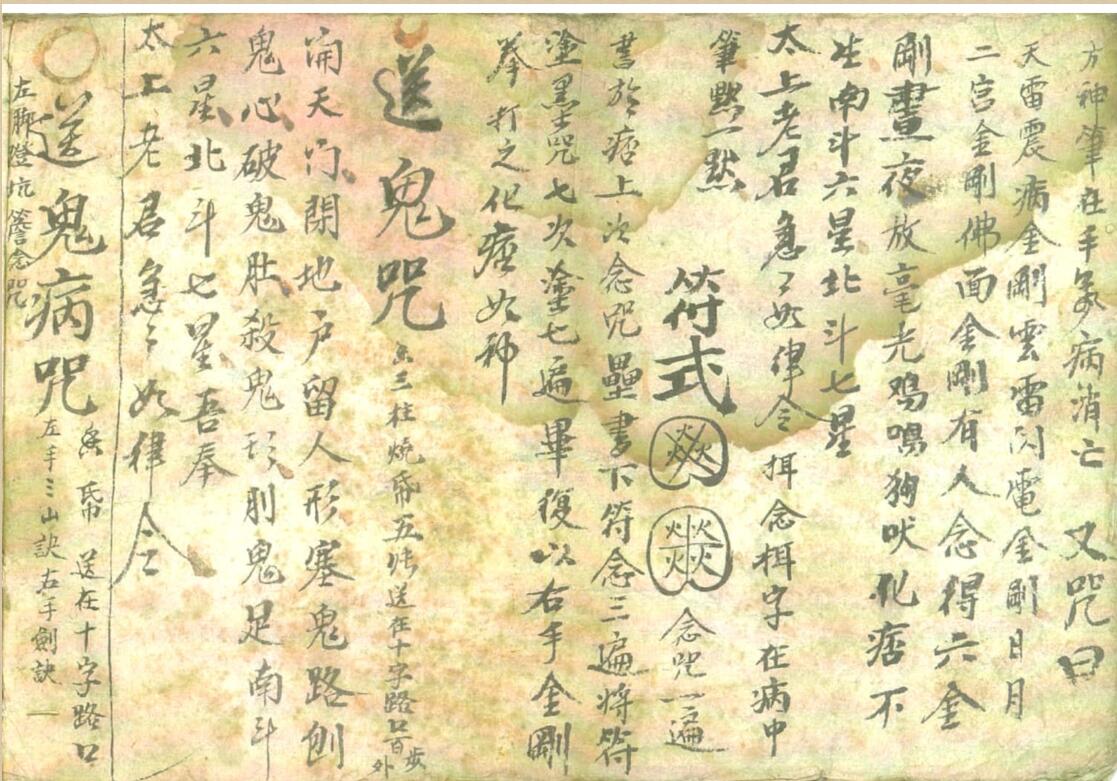 方神筆在手氣病消亡 又咒曰
天雷震病金剛雲雷閃電金剛日月
二宮金剛佛面金剛有人念得六金
剛晝夜放毫光鳴鳴狗吠化痞不
生南斗六星北斗七星
太上老君急〻如律令 挕念挕字在病中
筆點一點
符式 念咒一遍
書於痞上次念咒壘書下符念三遍將符
塗黑咒七次塗七遍畢復以右手金剛
拳打之化痞如神
送鬼咒 香三柱燒帋五張送在十字路口百步外
開天门閉地户留人形塞鬼路刨
鬼心破鬼肚殺鬼形刖鬼足南斗
六星北斗七星吾奉
太上老君急〻如律令
送鬼病咒 香帋送在十字路口
左手三山訣右手劍訣一
左脚燈坑簷念咒